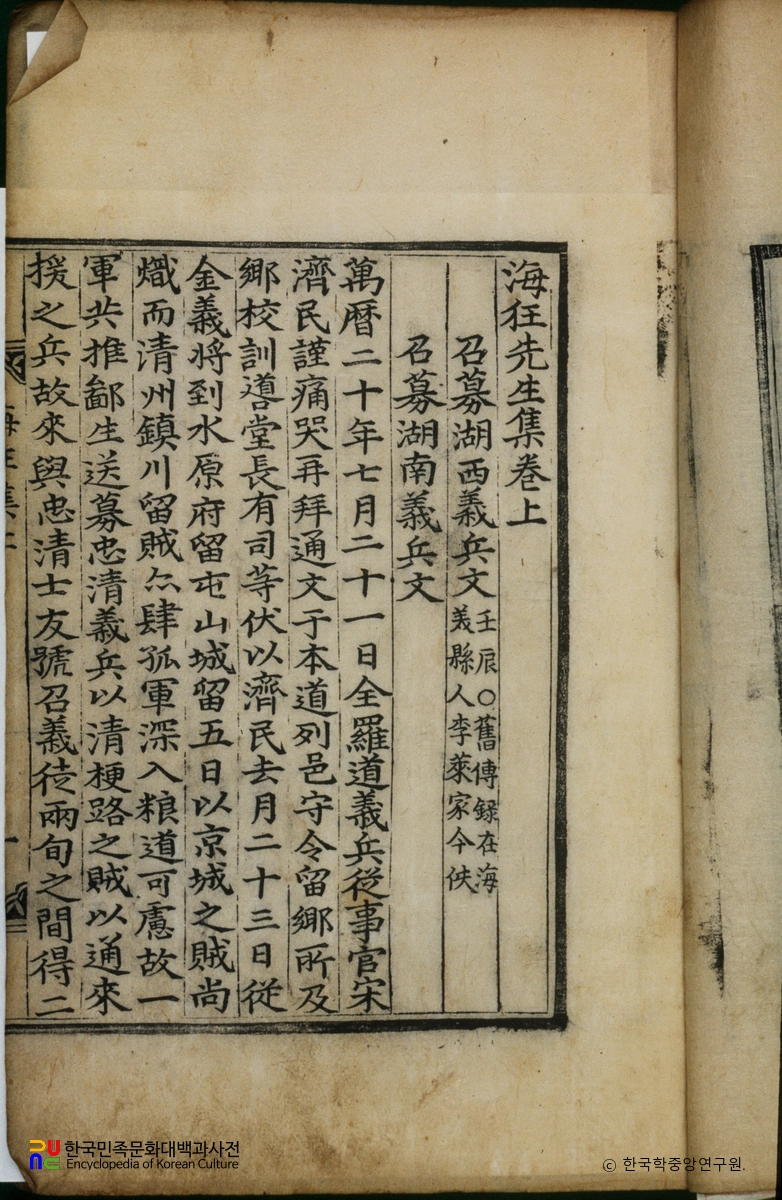 海狂先生集卷上
召募湖西義兵文 壬辰○舊傳錄在海美縣人李萊家今佚
召募湖南義兵文
萬曆二十年七月二十一日全羅道義兵從事官宋
濟民謹痛哭再拜通文于本道列邑守令留鄉所及
鄉校訓導堂長有司等伏以濟民去月二十三日從
金義將到水原府留屯山城留五日以京城之賊尚
熾而清州鎮川留賊亦肆孤軍深入粮道可慮故一
軍共推鄙生送募忠清義兵以清梗路之賊以通來
援之兵故來與忠清士友號召義徒兩旬之間得二
한국민족문화대백과사전
Encyclopedia of Korean Culture
ⓒ 한국학중앙연구원.